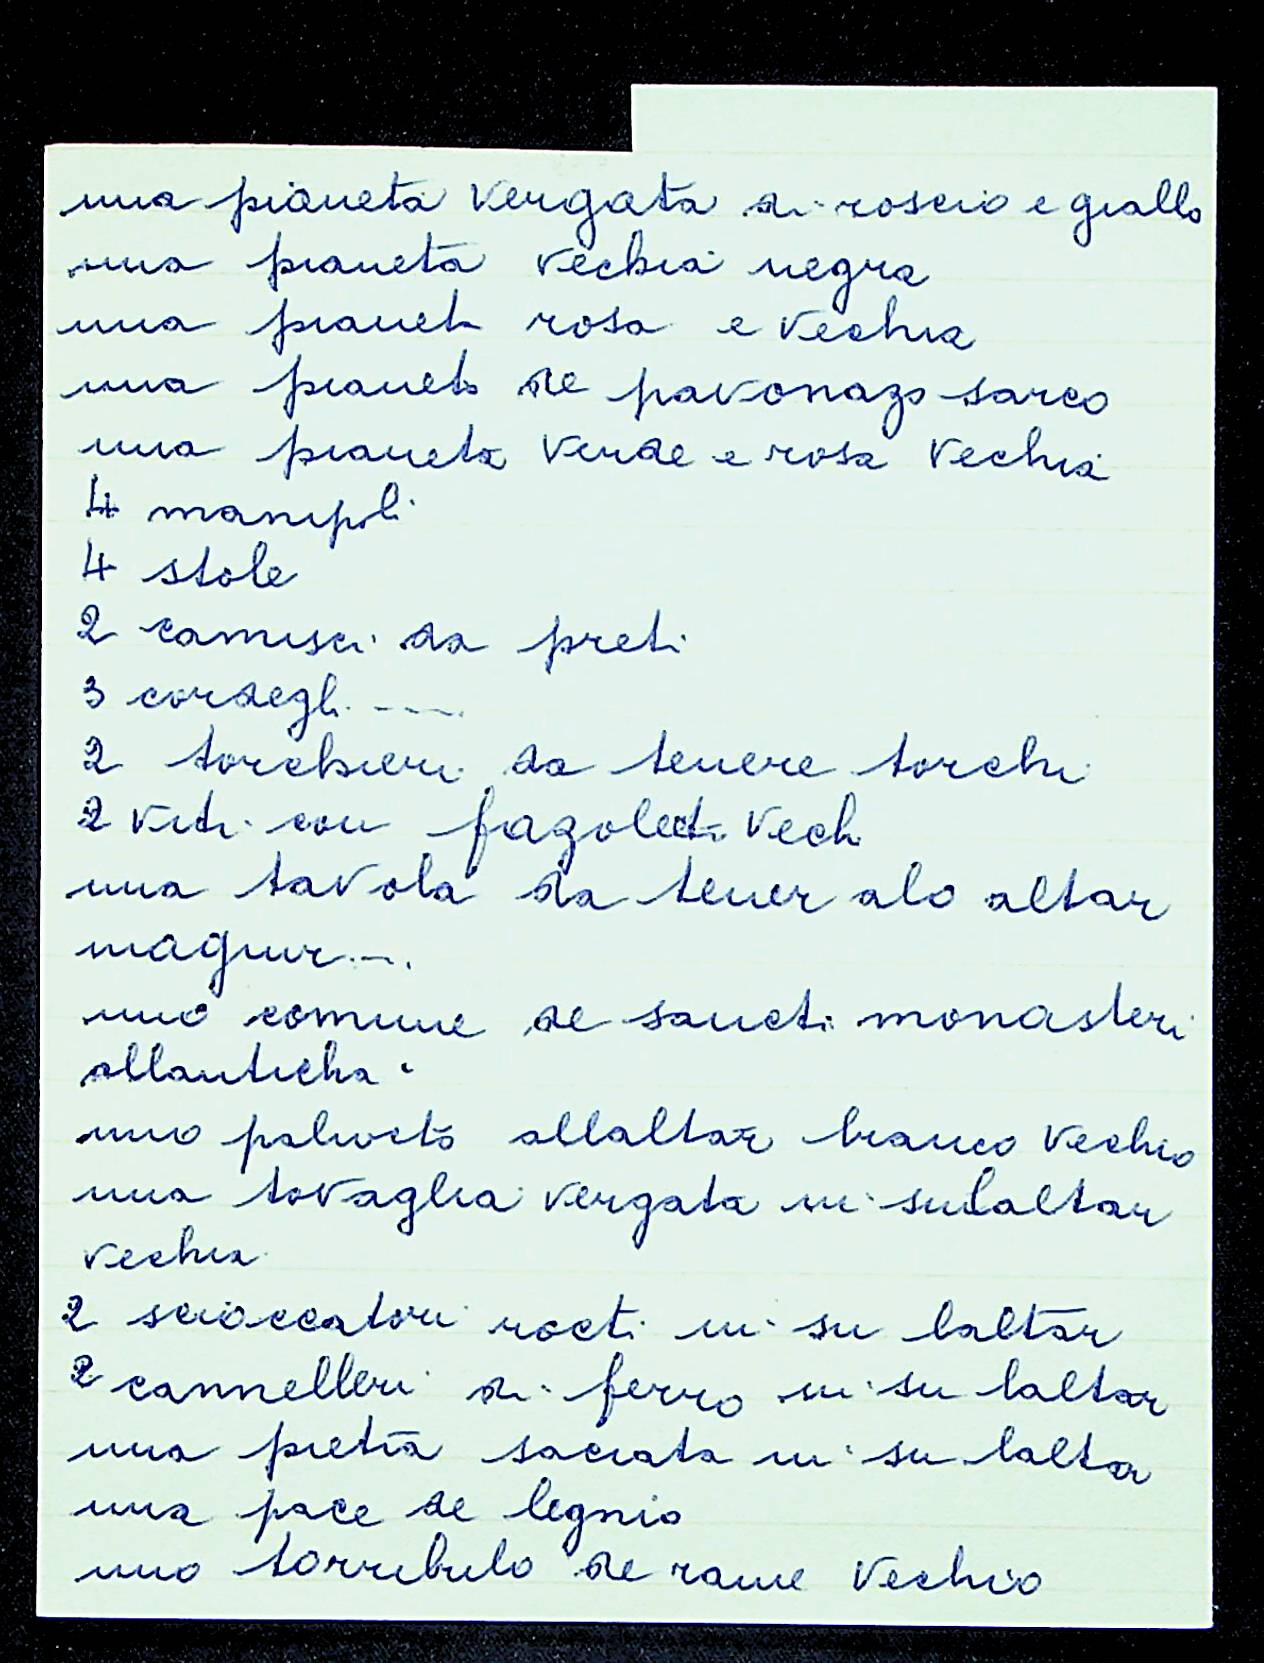 una pianeta vergata di roscio e giallo
una pianeta vechia negra
una pianeta rosa e vechia
una pianeta de pavonazo sarco
una pianeta verde e rosa vechia
4 manipoli
4 stole
2 camisci da preti
3 cordegli ----.
2 torchieri da tenere torchi
2 viti con fazolecti vech
una tavola da tener alo altar
magiur...
uno comune de sancti monasteri
allanticha
uno palioctō allaltar bianco vechio
una tovaglia vergata in sulaltar
vechia
2 scioccatori rocti in su laltar
2 cannelleri di ferro in su laltar
una pietra sacrata in su laltar
una pace de legnio
uno torribulo de rame vechio